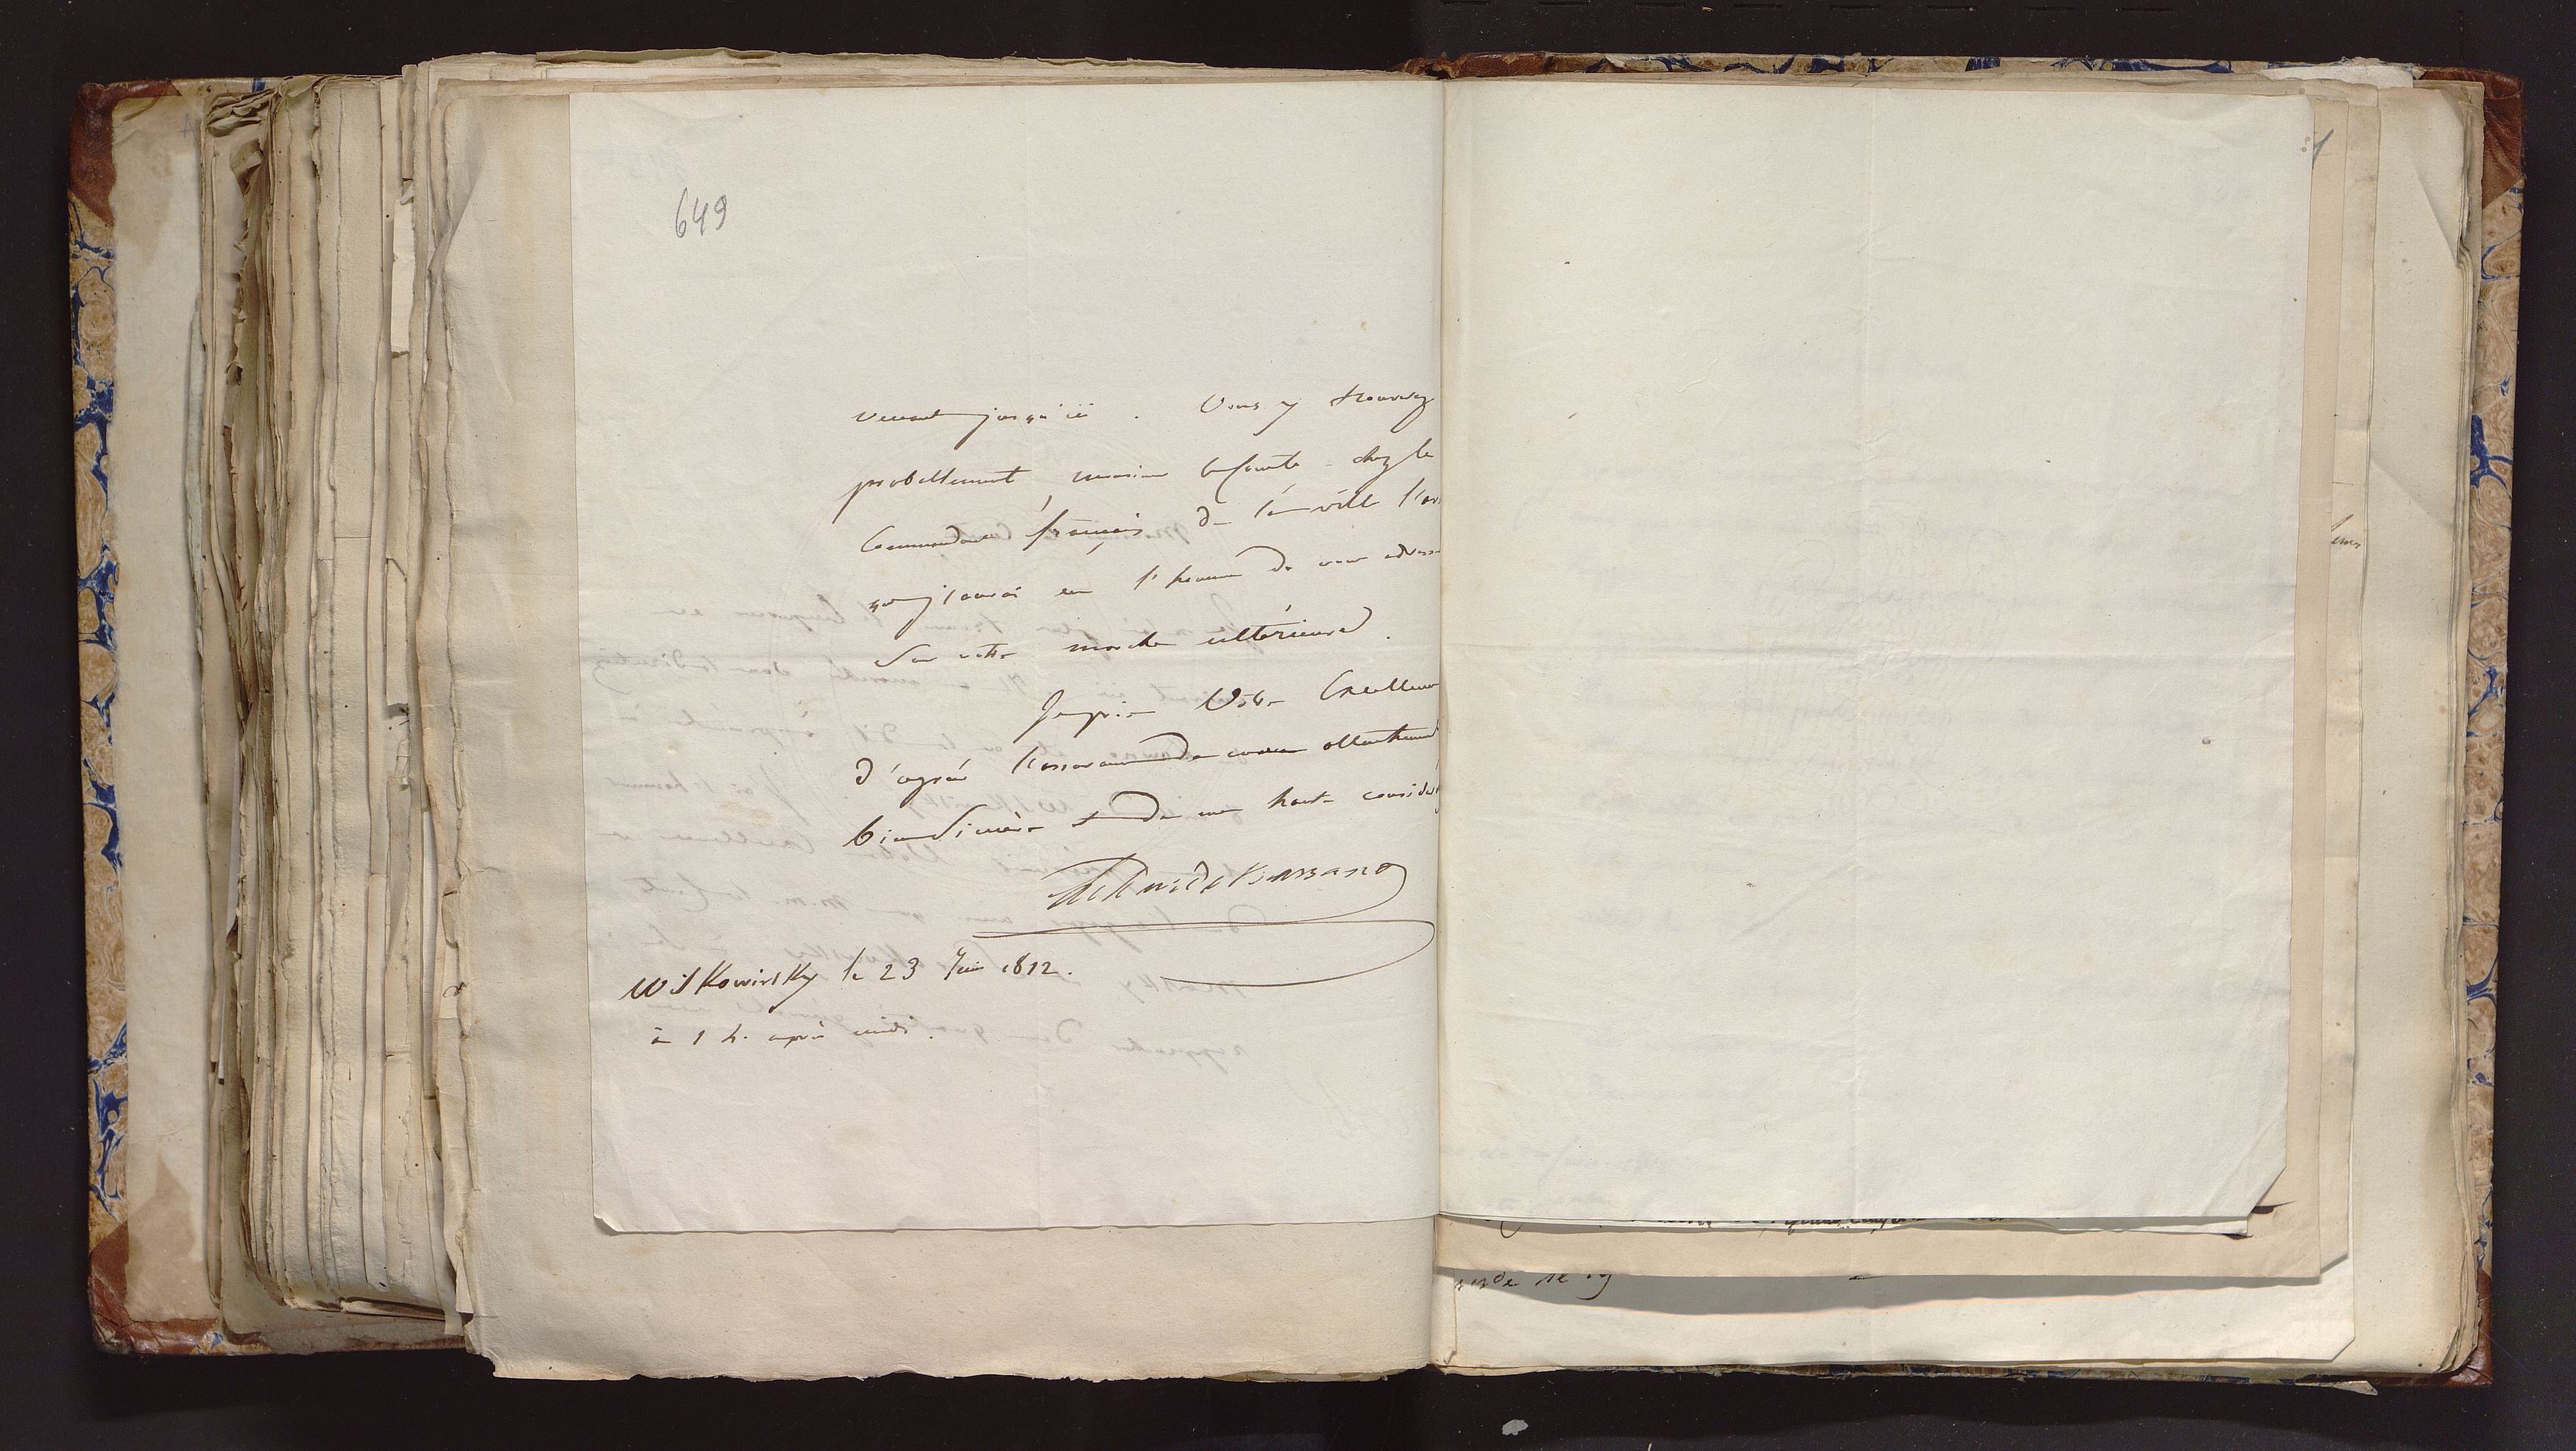 649
venant jusqu'ici. Vous y trouverez
probablement monsieur le Comte chez le
Commandant français de la ville l'avis
que j'aurai eu l'honneur de vous adresser
sur votre marche ultérieure.
Je prie Votre Excellence
d'agréer l'assurance de mon attachement
bien sincère et de ma haute considé
Le Duc de Bassano
Wilkowisky le 23 Juin 1812.
à 1 h. après midi.